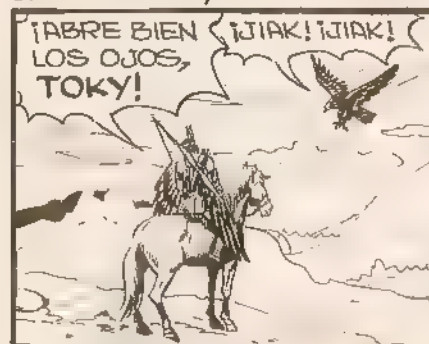 ¡ABRE BIEN
LOS OJOS,
TOKY!
¡JIAK! ¡JIAK!